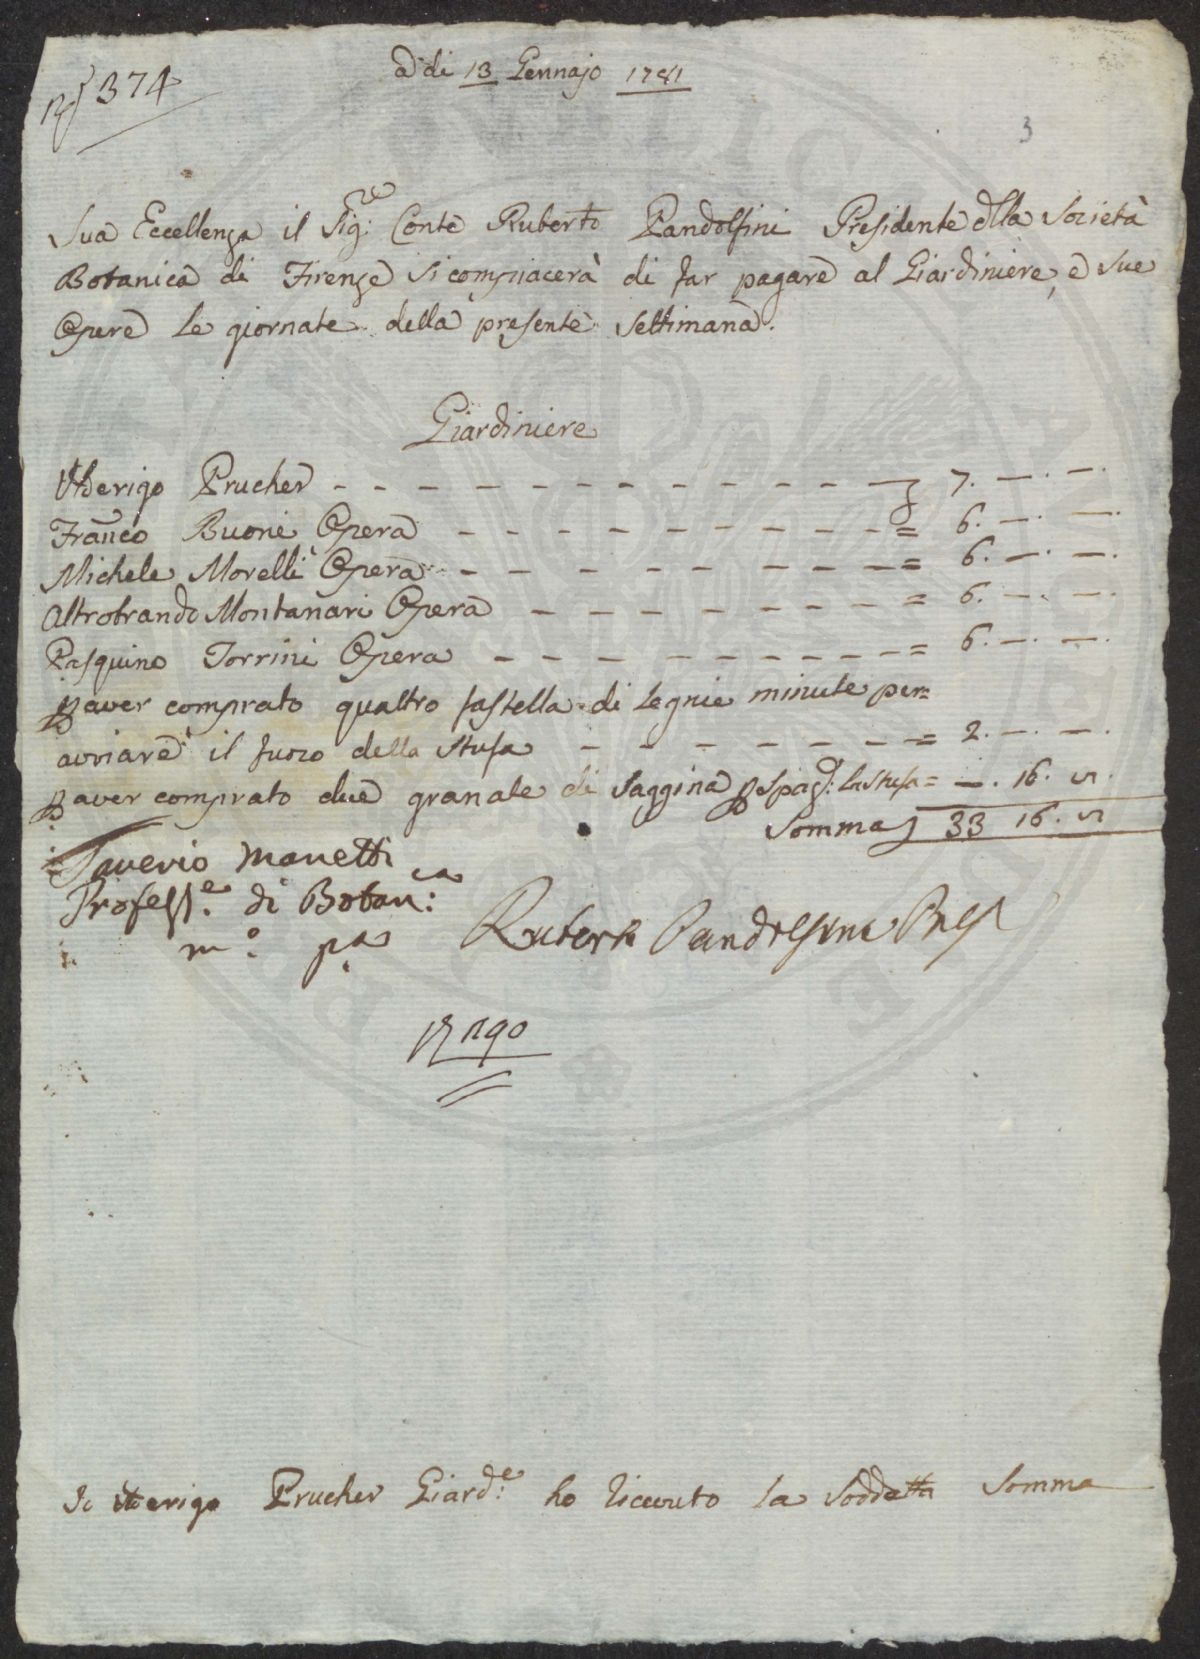 N.º 374
a di 13 Gennajo 1781
3
Sua Eccellenza il Sig:re Conte Ruberto Pandolfini Presidente dlla Società
Botanica di Firenze si compiacerà di far pagare al Giardiniere, e sue
Opere le giornate della presente Settimana.
Giardiniere
Uderigo Prucher - - - - - - - - - - - - - - £ 7. —. —.
Franco Buoni Opera - - - - - - - - - - - = 6. —. —.
Michele Morelli Opera - - - - - - - - - = 6. —. —.
Altrobrando Montanari Opera - - - - - - - = 6. —. —.
Pasquino Torrini Opera - - - - - - - - - = 6. —. —.
p aver comprato quattro fastella di legnie minute per=
avviare il fuoco della stufa - - - - - - = 2. —. —.
p aver comprato due granate di saggina p spaz: la stufa = —. 16. —.
Somma £ 33 16. —
Saverio Manetti
Profess:e di Botan:ca
m:o p:a
Ruberto Pandolfini Pres
Io Uderigo Prucher Giard:e ho riceuto la sodetta somma